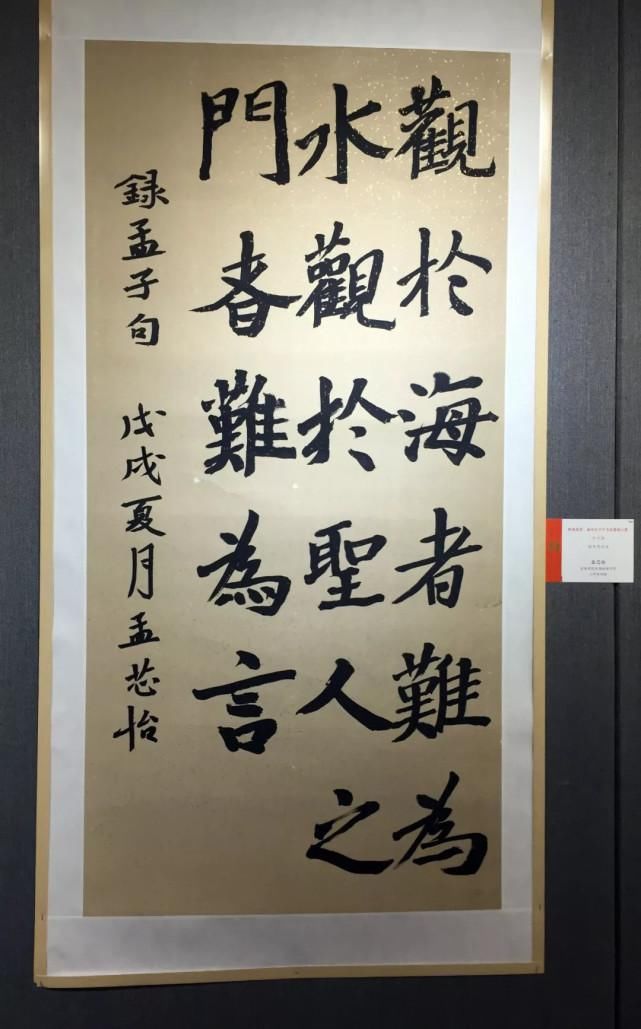 觀於海者難為
水觀於聖人之
門者難為言
録孟子句 戊戌夏月孟芯怡